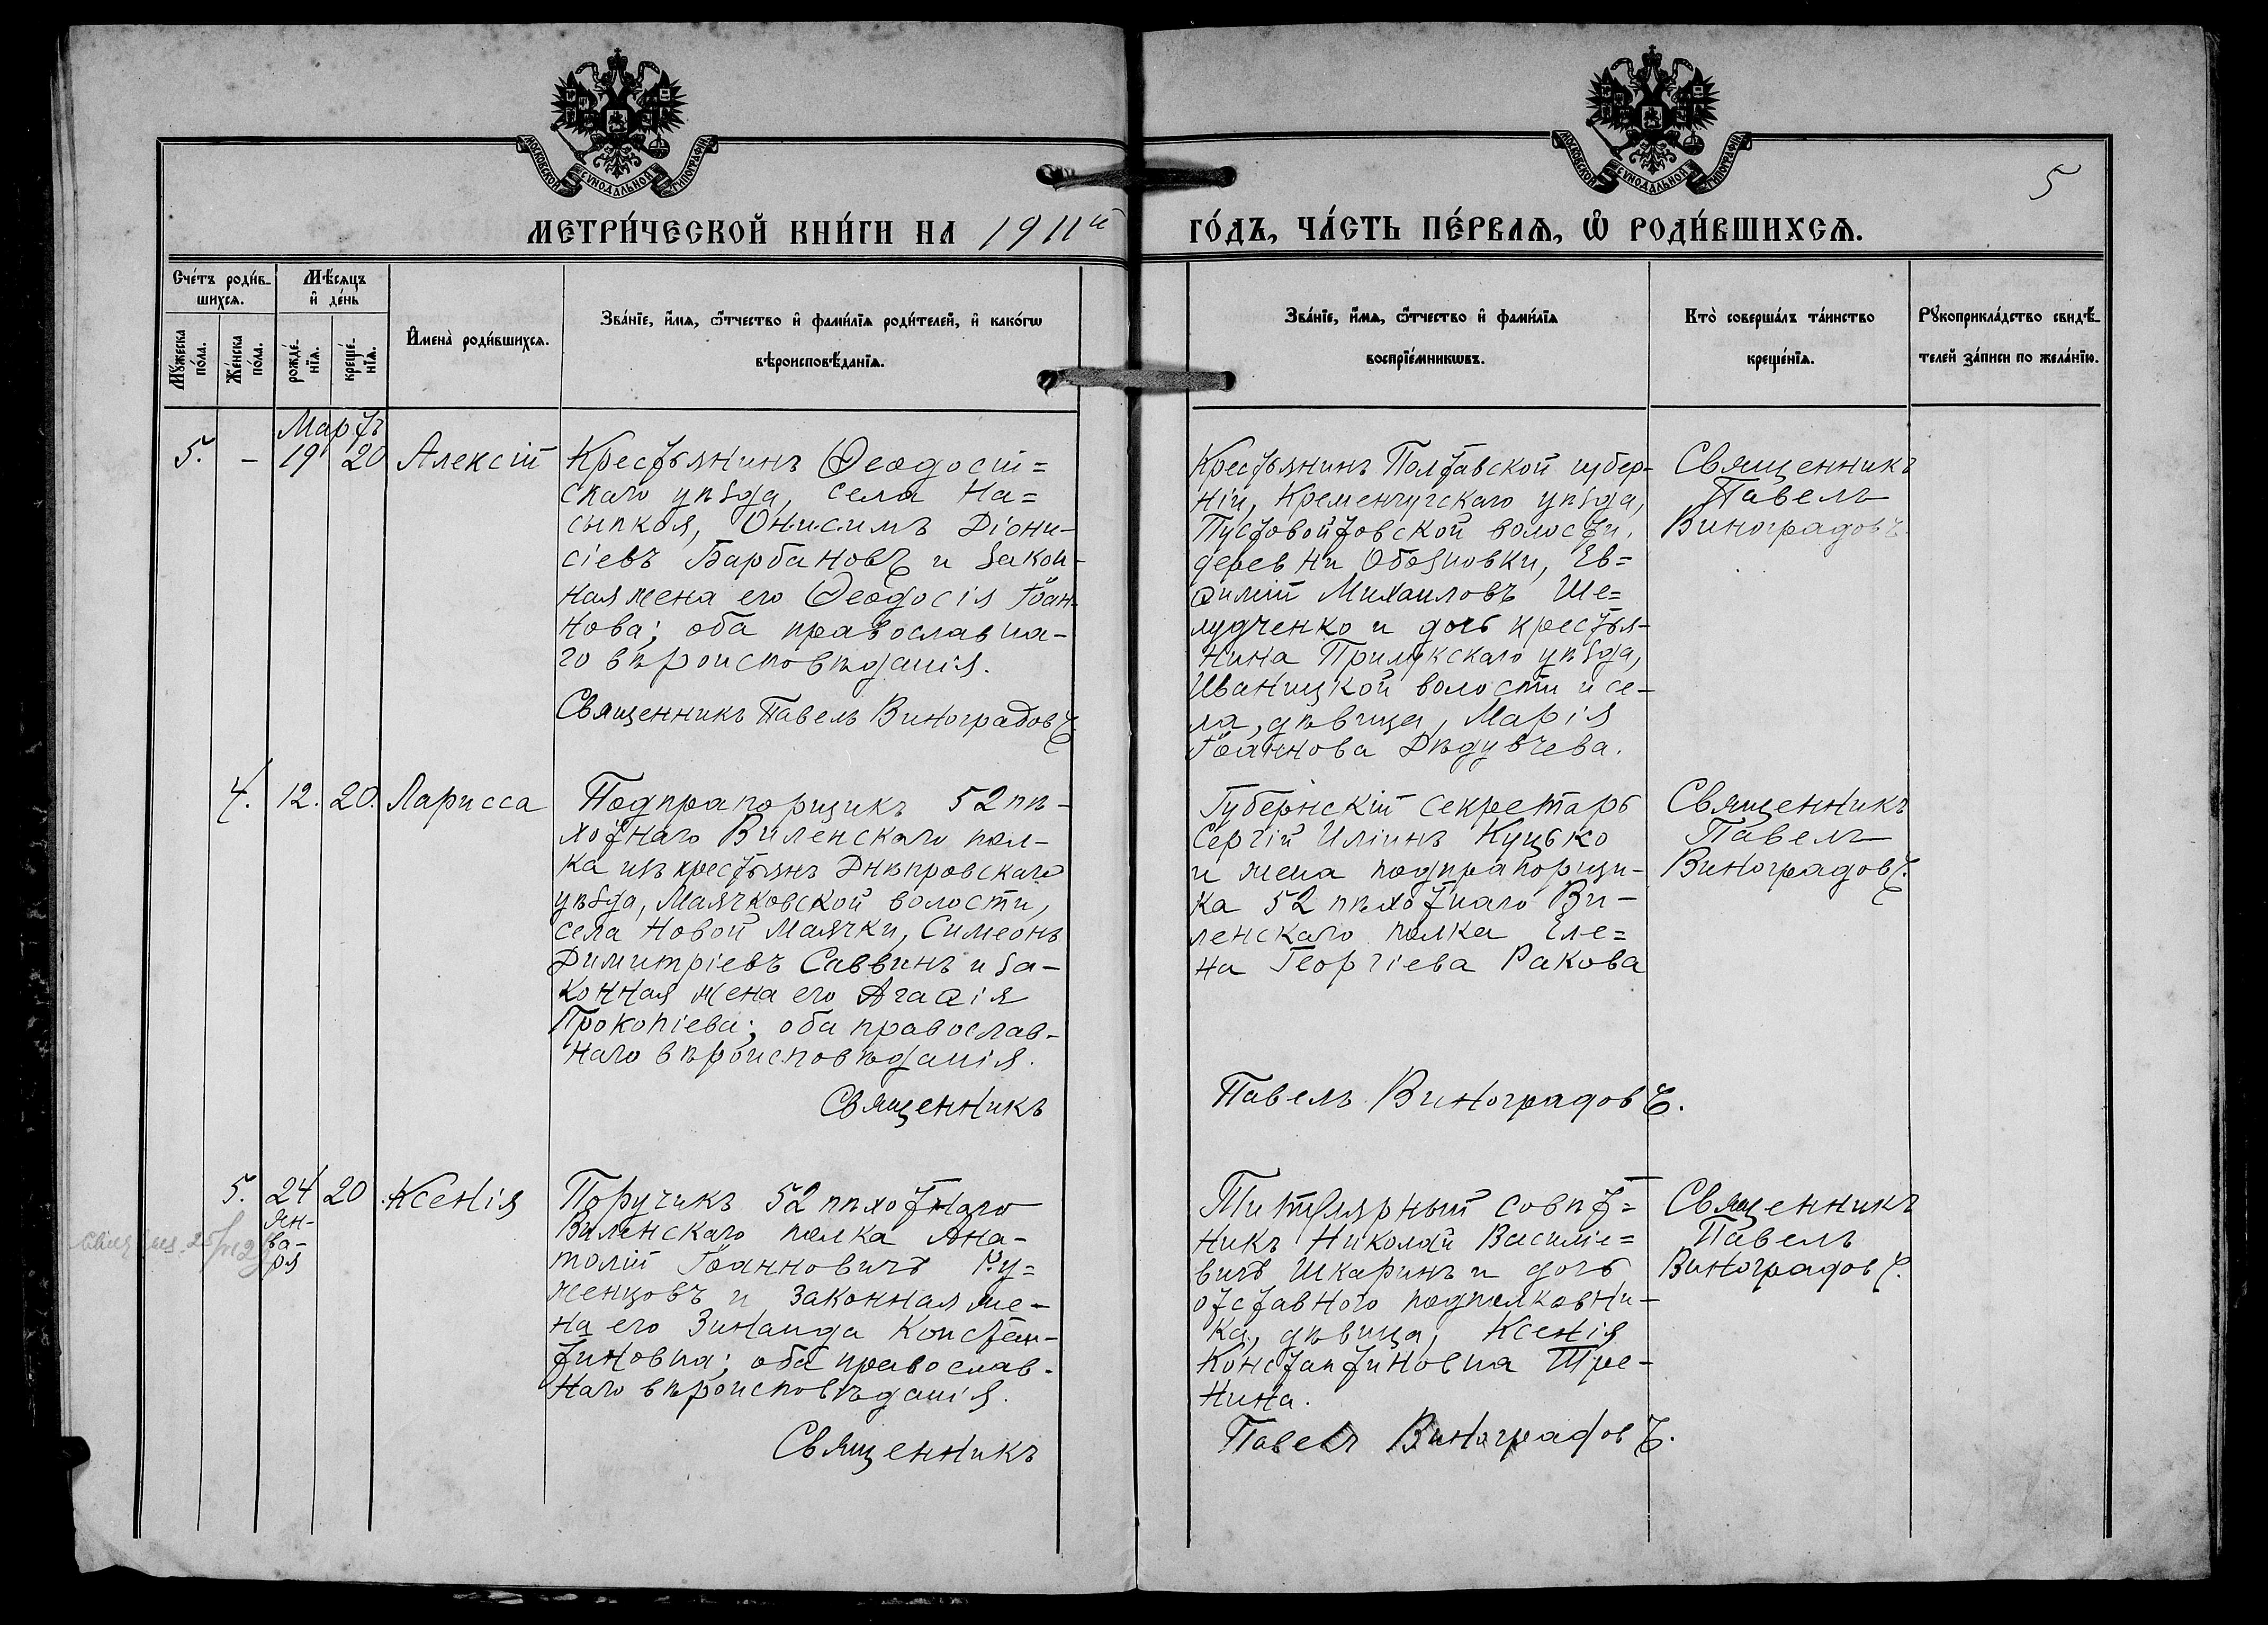 МОСКОВСКОЙ СѴНОДАЛЬНОЙ ТИПОГРАФІИ
МОСКОВСКОЙ СѴНОДАЛЬНОЙ ТИПОГРАФІИ
5
МЕТРИ́ЧЕСКОЙ КНИ́ГИ НА 1911й ГО́ДЪ, ЧА́СТЬ ПЕ́РВАѦ, Ѡ РОДИ́ВШИХСѦ.
Сче́тъ роди́в-
шихсѧ.
Мꙋ́жеска по́ла.
Же́нска по́ла.
Мѣ́сѧцъ
и҆ де́нь
рожде́-
нїѧ.
креще́-
нїѧ.
И҆мена̀ роди́вшихсѧ.
Зва́нїе, и҆́мѧ, ѻ҆́тчество и҆ фами́лїѧ роди́телей, и҆ како́гѡ
вѣроисповѣ́данїѧ.
Зва́нїе, и҆́мѧ, ѻ҆́тчество и҆ фами́лїѧ
воспрїе́мникѡвъ.
Кто̀ соверша́лъ та́инство
креще́нїѧ.
Рꙋкоприкла́дство свидѣ́-
телей за́писи по жела́нїю.
Мартъ
5. – 19 20 Алексій
Крестьянинъ Ѳеодосій=
скаго уѣзда, села На=
сыпкоя, Онисимъ Діони-
сіевъ Барбановъ и закон-
ная жена его Ѳеодосія Іоан-
нова; оба православна-
го вѣроисповѣданія.
Священникъ Павелъ Виноградовъ
Крестьянинъ Полтавской губер-
ніи, Кременчугскаго уѣзда,
Пустовойтовской волости,
деревни Обозновки, Ев=
ѳимій Михаиловъ Ше=
лудченко и дочь крестья-
нина Прилукскаго уѣзда,
Иваницкой волости и се-
ла, дѣвица, Марія
Іоаннова Дѣдувчева.
Священникъ
Павелъ
Виноградовъ.
4. 12. 20. Ларисса
Подпрапорщикъ 52 пѣ-
хотнаго Виленскаго пол-
ка изъ крестьянъ Днѣпровскаго
уѣзда, Маячковской волости,
села Новой Маячки, Симеонъ
Димитріевъ Саввинъ и за-
конная жена его Агаѳія
Прокопіева; оба православ-
наго вѣроисповѣданія.
Священникъ Павелъ Виноградовъ.
Губернскій секретарь
Сергій Иліинъ Куцько
и жена подпрапорщи-
ка 52 пѣхотнаго Ви-
ленскаго полка Еле=
на Георгіева Ракова
Священникъ
Павелъ
Виноградовъ.
5. 24 20 Ксенія
Ян-
ва-
ря
Поручикъ 52 пѣхотнаго
Виленскаго полка Ана-
толій Іоанновичъ Ру=
женцовъ и законная же-
на его Зинаида Констан-
тиновна; оба православ-
наго вѣроисповѣданія.
Священникъ
Титулярный совѣт=
никъ Николай Василіе=
вичъ Шкаринъ и дочь
отставного подполковни-
ка, дѣвица, Ксенія
Константиновна Тре-
нина.
Павелъ Виноградовъ.
Священникъ
Павелъ
Виноградовъ.